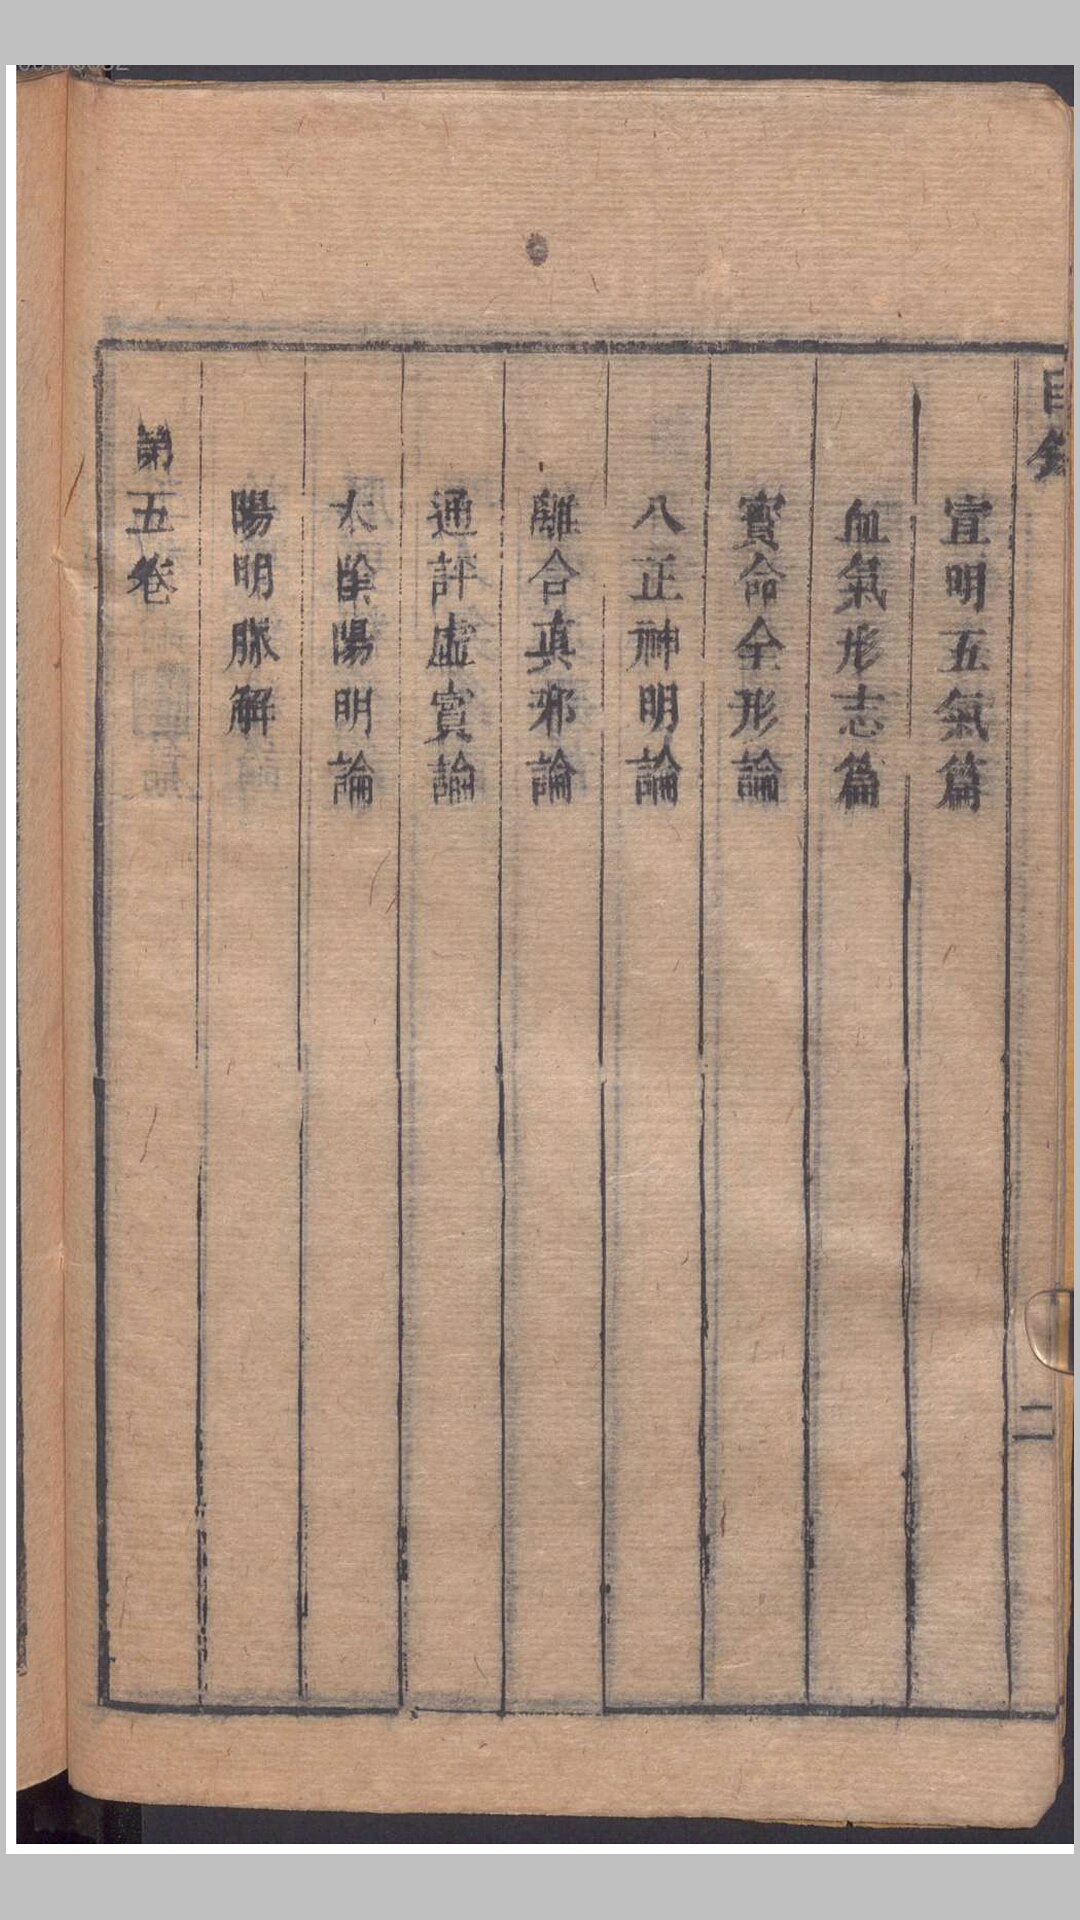 目錄
二
宣明五氣篇
血氣形志篇
寳命全形論
八正神明論
離合真邪論
通評虛實論
太陰陽明論
陽明脈解
第五卷